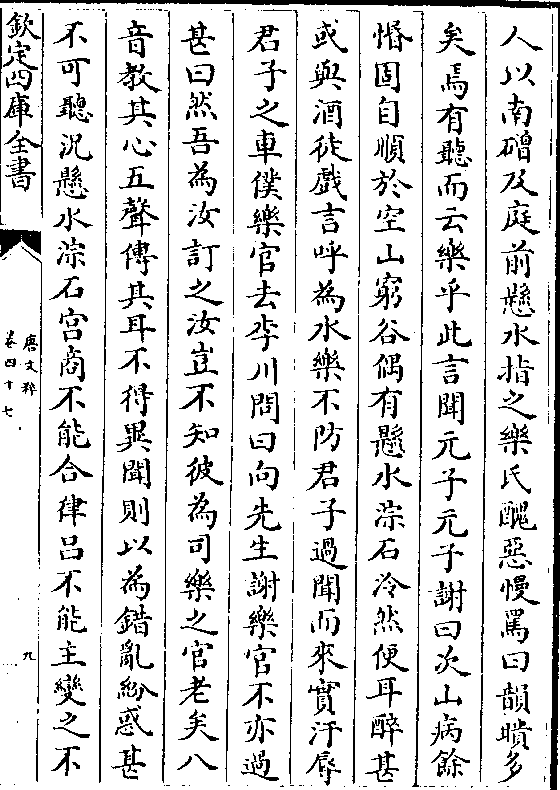 人以南磳及庭前懸水指之樂氏醜惡慢罵曰韻聵多
矣焉有聽而云樂乎此言聞元子元子謝曰次山病餘
惛固自順於空山窮谷偶有懸水淙石泠然便耳醉甚
或與酒徒戲言呼為水樂不防君子過聞而來實汙辱
君子之車僕樂官去李川問曰向先生謝樂官不亦過
甚曰然吾為汝訂之汝豈不知彼為司樂之官老矣八
音教其心五聲傳其耳不得異聞則以為錯亂紛惑甚
不可聽況懸水淙石宫商不能合律吕不能主變之不
欽定四庫全書
唐文粹
卷四十七
九